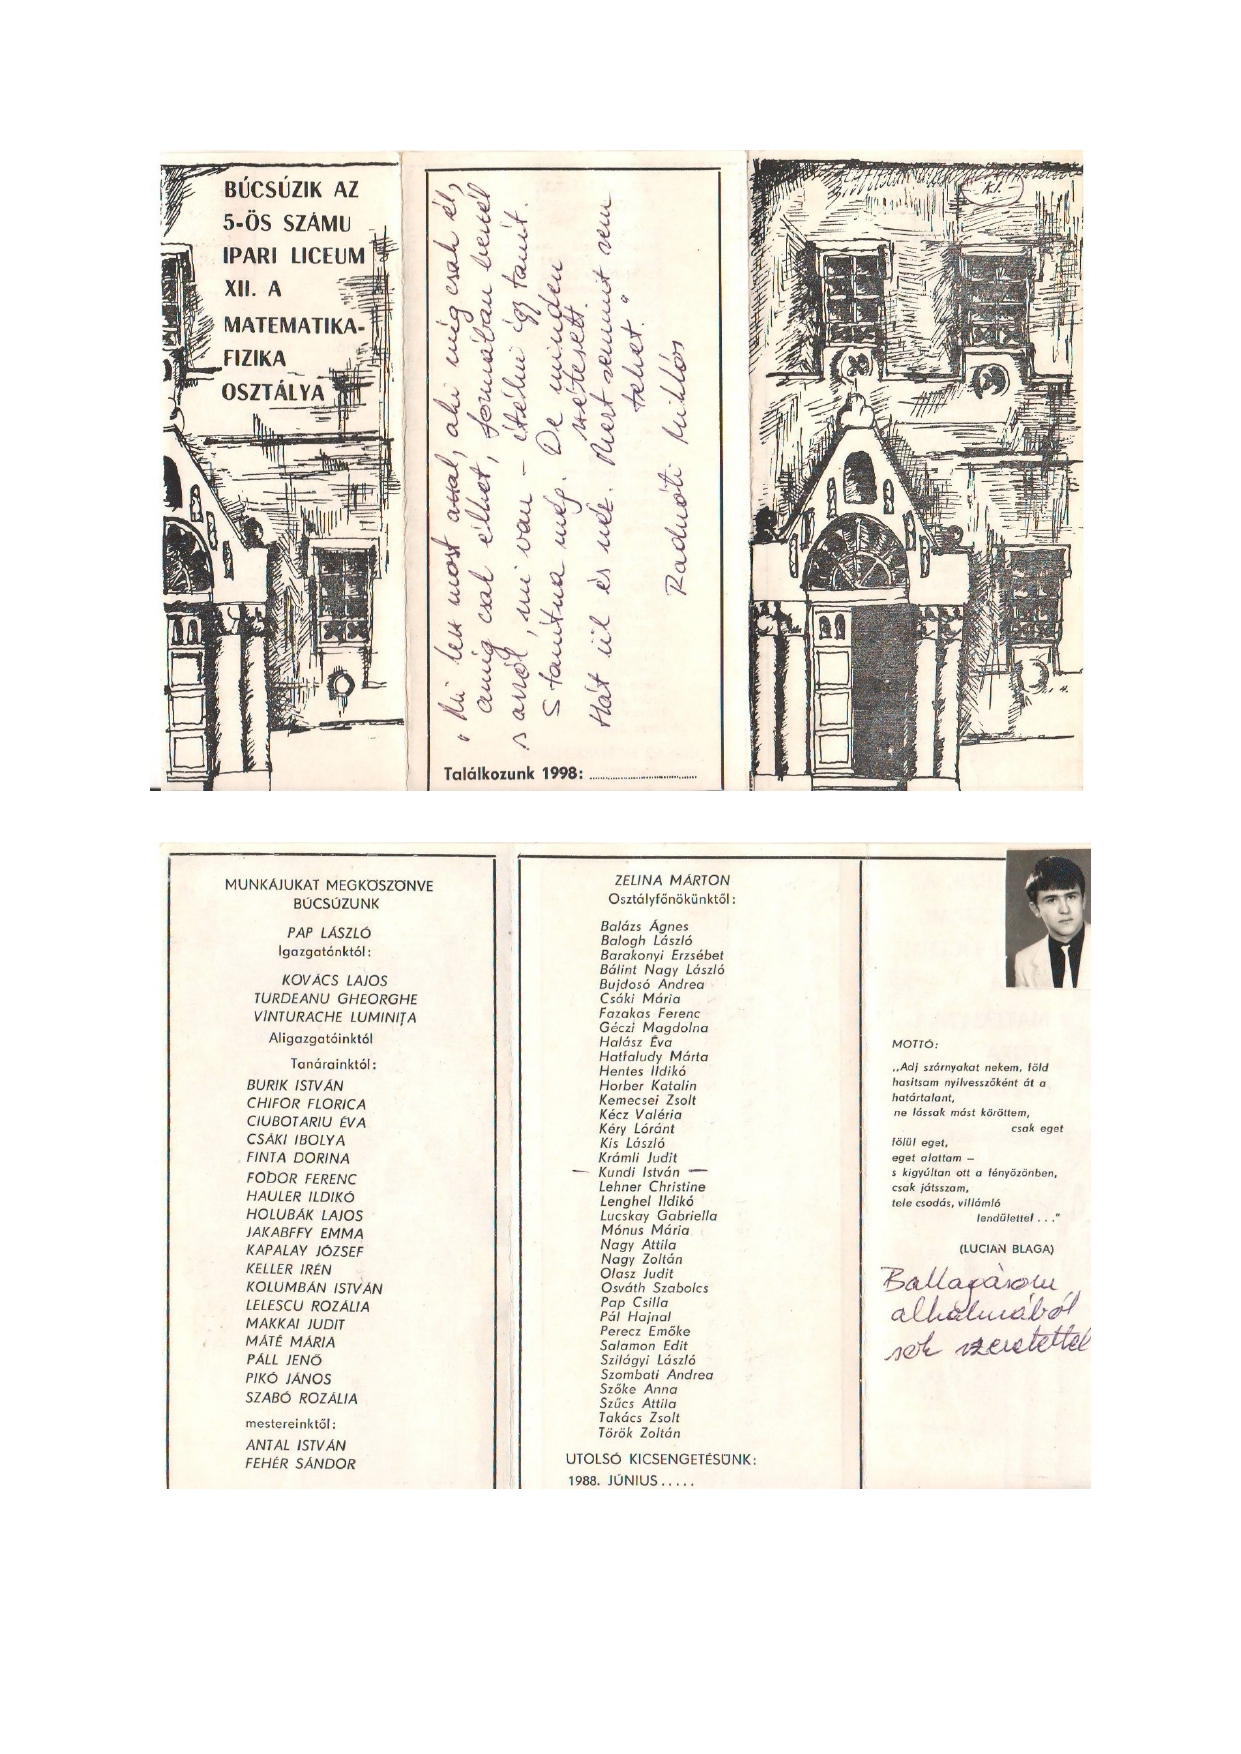 BÚCSÚZIK AZ
5-ÖS SZÁMU
IPARI LICEUM
XII. A
MATEMATIKA-
FIZIKA
OSZTÁLYA
„Mi lesz most azzal, aki míg csak él,
amíg csak élhet, formában beszél
s arról, mi van – ítélni így tanít.
S tanítna még. De minden
szétesett.
Hát ül és néz. Mert semmit sem
tehet.”
Radnóti Miklós
Találkozunk 1998: ..............................
- k.l. -
MUNKÁJUKAT MEGKÖSZÖNVE
BÚCSÚZUNK
PAP LÁSZLÓ
Igazgatónktól:
KOVÁCS LAJOS
TURDEANU GHEORGHE
VINTURACHE LUMINIȚA
Aligazgatóinktól
Tanárainktól:
BURIK ISTVÁN
CHIFOR FLORICA
CIUBOTARIU ÉVA
CSÁKI IBOLYA
FINTA DORINA
FODOR FERENC
HAULER ILDIKÓ
HOLUBÁK LAJOS
JAKABFFY EMMA
KAPALAY JÓZSEF
KELLER IRÉN
KOLUMBÁN ISTVÁN
LELESCU ROZÁLIA
MAKKAI JUDIT
MÁTÉ MÁRIA
PÁLL JENŐ
PIKÓ JÁNOS
SZABÓ ROZÁLIA
mestereinktől:
ANTAL ISTVÁN
FEHÉR SÁNDOR
ZELINA MÁRTON
Osztályfőnökünktől:
Balázs Ágnes
Balogh László
Barakonyi Erzsébet
Bálint Nagy László
Bujdosó Andrea
Csáki Mária
Fazakas Ferenc
Géczi Magdolna
Halász Éva
Hatfaludy Márta
Hentes Ildikó
Horber Katalin
Kemecsei Zsolt
Kécz Valéria
Kéry Lóránt
Kis László
Krámli Judit
— Kundi István —
Lehner Christine
Lenghel Ildikó
Lucskay Gabriella
Mónus Mária
Nagy Attila
Nagy Zoltán
Olasz Judit
Osváth Szabolcs
Pap Csilla
Pál Hajnal
Perecz Emőke
Salamon Edit
Szilágyi László
Szombati Andrea
Szőke Anna
Szűcs Attila
Takács Zsolt
Török Zoltán
UTOLSÓ KICSENGETÉSÜNK:
1988. JÚNIUS.....
MOTTÓ:
„Adj szárnyakat nekem, föld
hasítsam nyílvesszőként át a
határtalant,
ne lássak mást köröttem,
csak eget
fölül eget,
eget alattam –
s kigyúltan ott a fényözönben,
csak játsszam,
tele csodás, villámló
lendülettel . . ."
(LUCIAN BLAGA)
Ballagásom
alkalmából
sok szeretettel